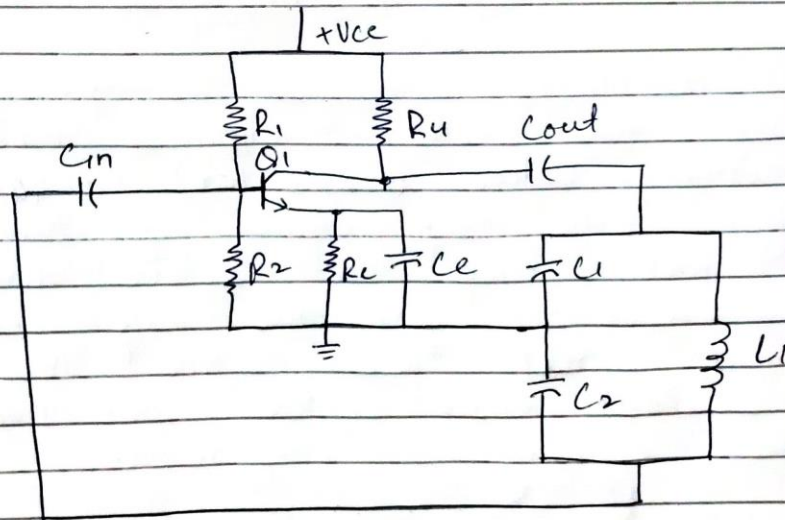 +Vcc
R1
R4
Cout
Cin
Q1
R2
Re
Ce
C1
L1
C2